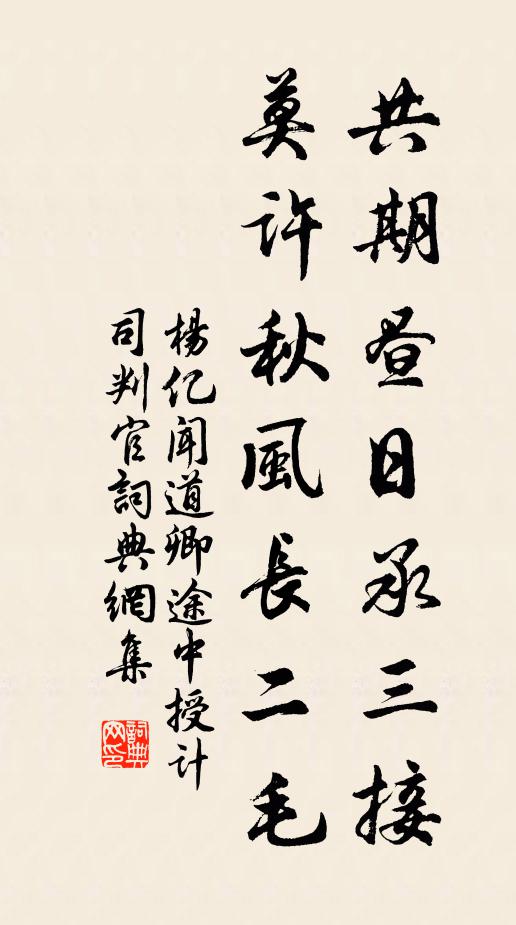 共期昼日承三接
莫许秋風長二毛
楊亿闻道卿途中授计
司判官詞典網集
詞典
网印